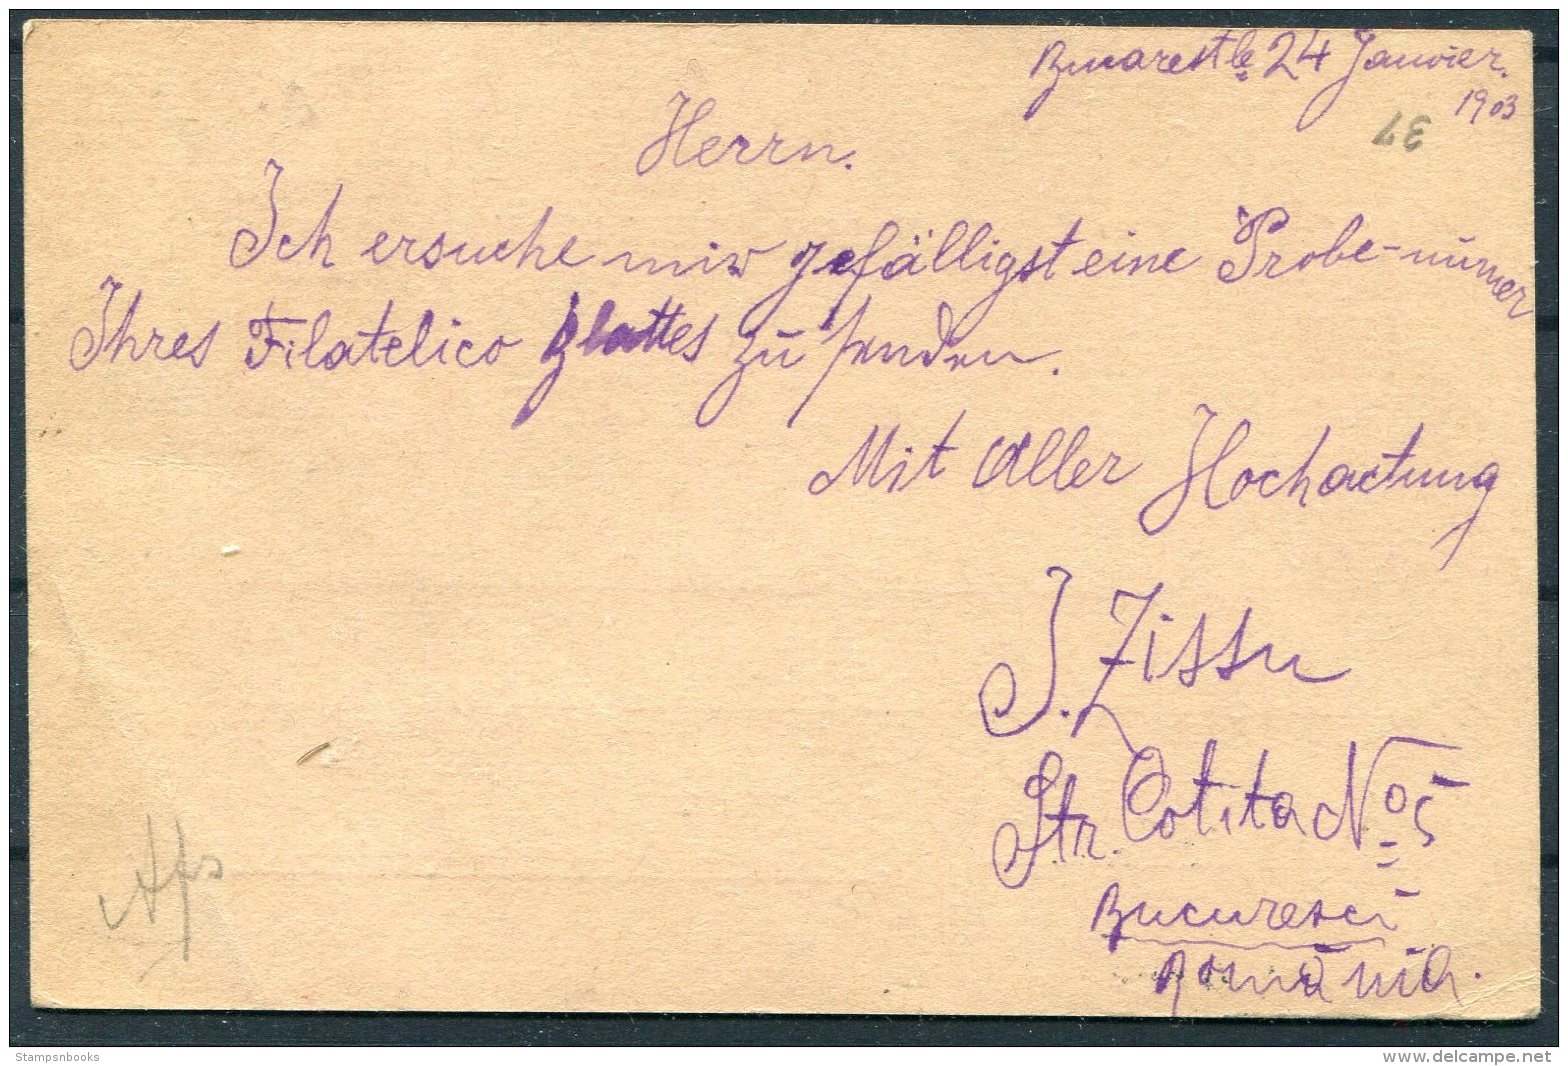 Bucarest le 24 Janvier.
1903
37
Herrn.
Ich ersuche mir gefälligst eine Probe-numer
Ihres Filatelico Blattes zu senden.
Mit aller Hochactung
J. Zissu
Str. Cotita No 5
Bucuresci
România.
Stampsnbooks
www.delcampe.net